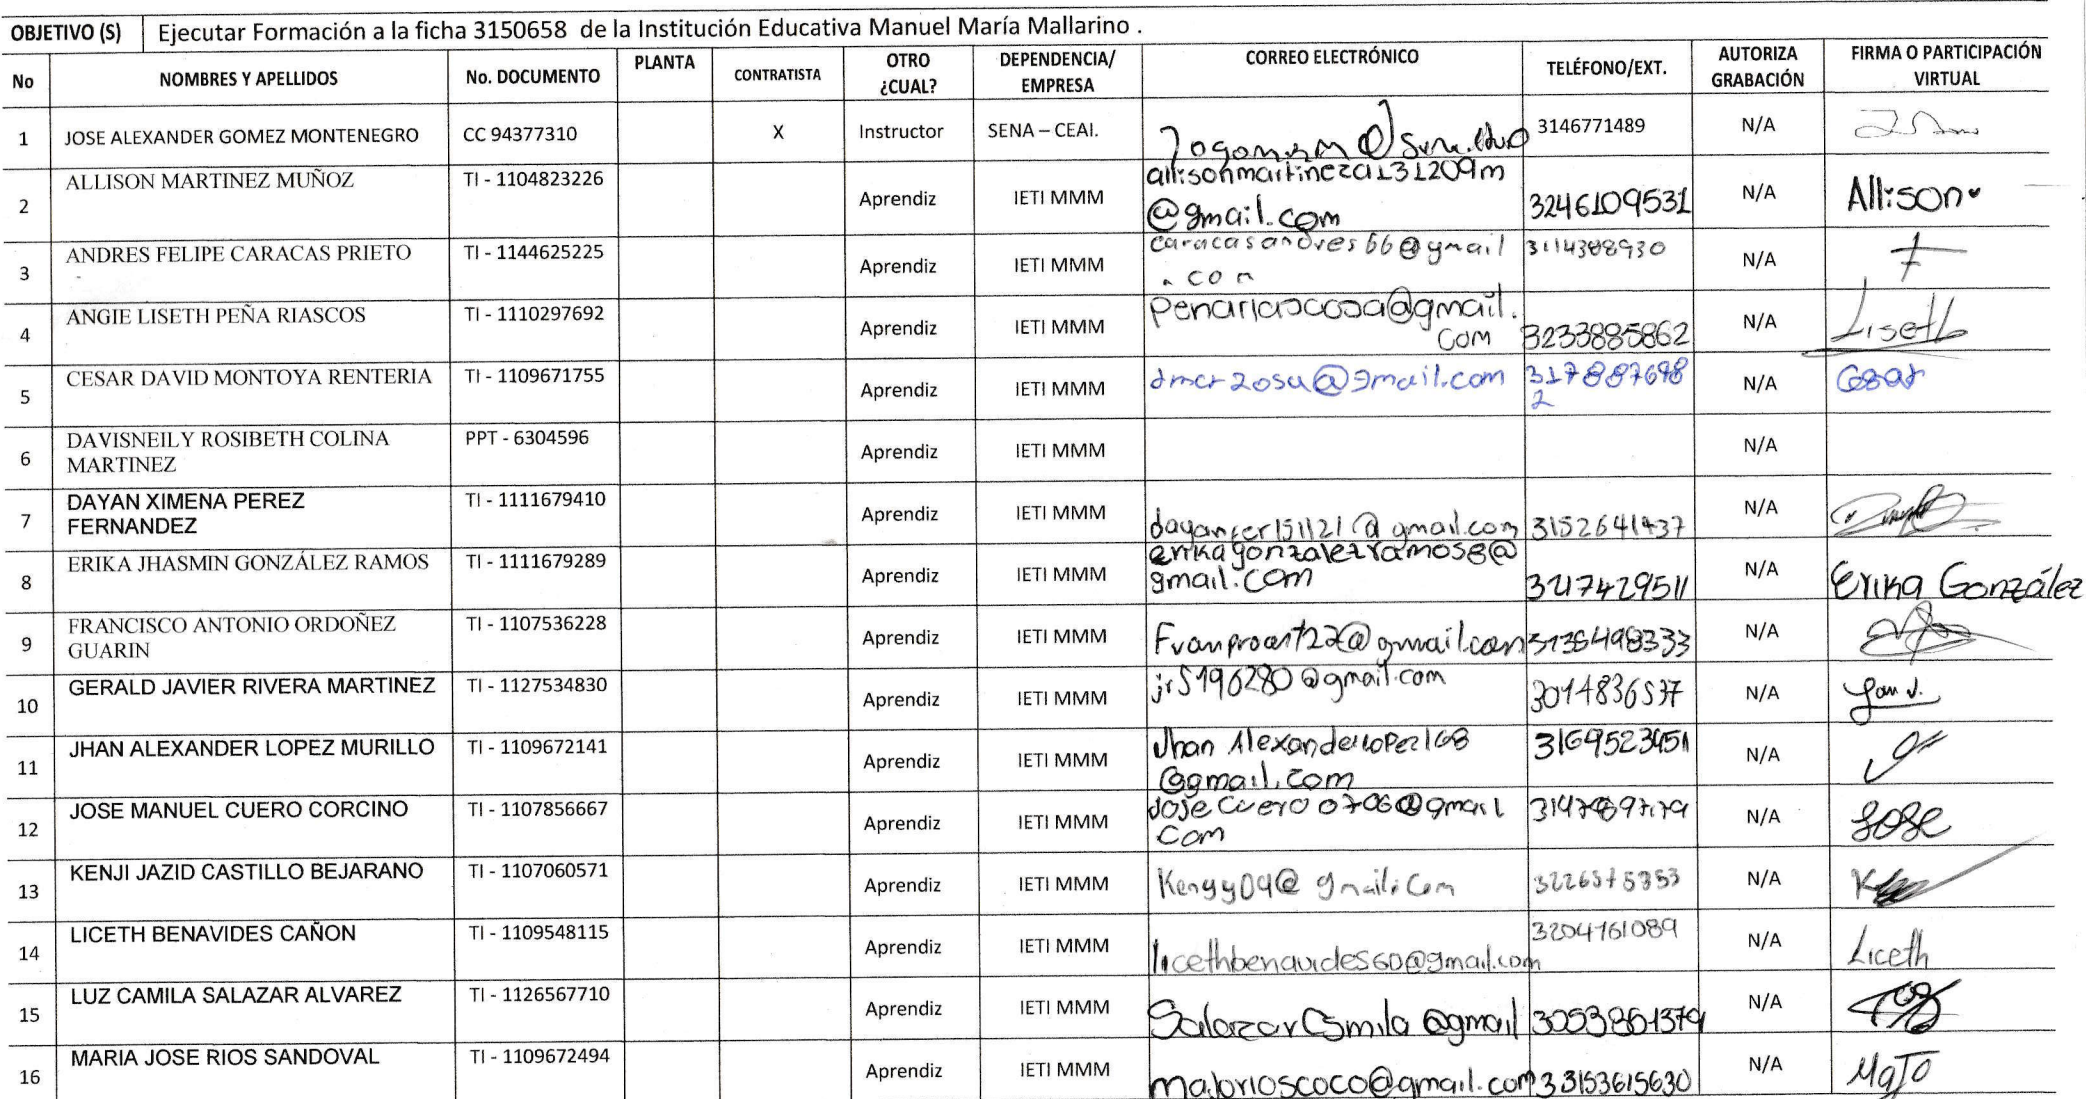 OBJETIVO (S) Ejecutar Formación a la ficha 3150658 de la Institución Educativa Manuel María Mallarino .
No NOMBRES Y APELLIDOS No. DOCUMENTO PLANTA CONTRATISTA OTRO ¿CUAL? DEPENDENCIA/ EMPRESA CORREO ELECTRÓNICO TELÉFONO/EXT. AUTORIZA GRABACIÓN FIRMA O PARTICIPACIÓN VIRTUAL
1 JOSE ALEXANDER GOMEZ MONTENEGRO CC 94377310 X Instructor SENA – CEAI. 3146771489 N/A
2 ALLISON MARTINEZ MUÑOZ TI - 1104823226 Aprendiz IETI MMM allisonmartineza131209m @gmail.com 3246109531 N/A Allison
3 ANDRES FELIPE CARACAS PRIETO TI - 1144625225 Aprendiz IETI MMM caracasandres66@gmail .con 3114388930 N/A
4 ANGIE LISETH PEÑA RIASCOS TI - 1110297692 Aprendiz IETI MMM penariascosa@gmail. com 3233885862 N/A Liseth
5 CESAR DAVID MONTOYA RENTERIA TI - 1109671755 Aprendiz IETI MMM dmcr20sa@gmail.com 3178876982 N/A Cesar
6 DAVISNEILY ROSIBETH COLINA MARTINEZ PPT - 6304596 Aprendiz IETI MMM N/A
7 DAYAN XIMENA PEREZ FERNANDEZ TI - 1111679410 Aprendiz IETI MMM dayanfer151121@gmail.com 3152641437 N/A
8 ERIKA JHASMIN GONZÁLEZ RAMOS TI - 1111679289 Aprendiz IETI MMM erikagonzalezramos8@ gmail.com 3217429511 N/A Erika González
9 FRANCISCO ANTONIO ORDOÑEZ GUARIN TI - 1107536228 Aprendiz IETI MMM 3136498333 N/A
10 GERALD JAVIER RIVERA MARTINEZ TI - 1127534830 Aprendiz IETI MMM jr5196280@gmail.com 3014836537 N/A
11 JHAN ALEXANDER LOPEZ MURILLO TI - 1109672141 Aprendiz IETI MMM Jhan Alexanderlopez168 @gmail.com 3169523451 N/A
12 JOSE MANUEL CUERO CORCINO TI - 1107856667 Aprendiz IETI MMM Jose Cuero 0706@gmail com N/A JOSE
13 KENJI JAZID CASTILLO BEJARANO TI - 1107060571 Aprendiz IETI MMM Kengy09@gmail.com N/A
14 LICETH BENAVIDES CAÑON TI - 1109548115 Aprendiz IETI MMM licethbenavides60@gmail.com 3204761089 N/A Liceth
15 LUZ CAMILA SALAZAR ALVAREZ TI - 1126567710 Aprendiz IETI MMM Salazar Camila @gmail 3053861379 N/A
16 MARIA JOSE RIOS SANDOVAL TI - 1109672494 Aprendiz IETI MMM majorioscoco@gmail.com 33153615630 N/A MaJo